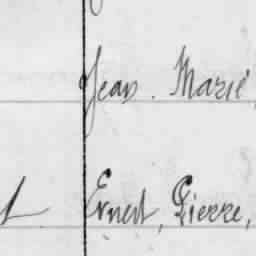 Jean. Marie
Ernest, Pierre,